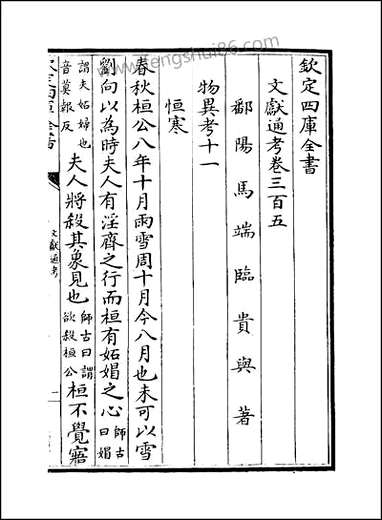 欽定四庫全書
文獻通考卷三百五
鄱陽馬端臨貴與著
物異考十一
恒寒
春秋桓公八年十月雨雪周十月今八月也未可以雪
劉向以為時夫人有淫齊之行而桓有妬媢之心師古曰媢
謂夫妬婦也音莫報反夫人將殺其象見也師古曰謂欲殺桓公桓不覺寤
文獻通考
www.fengshui86.com